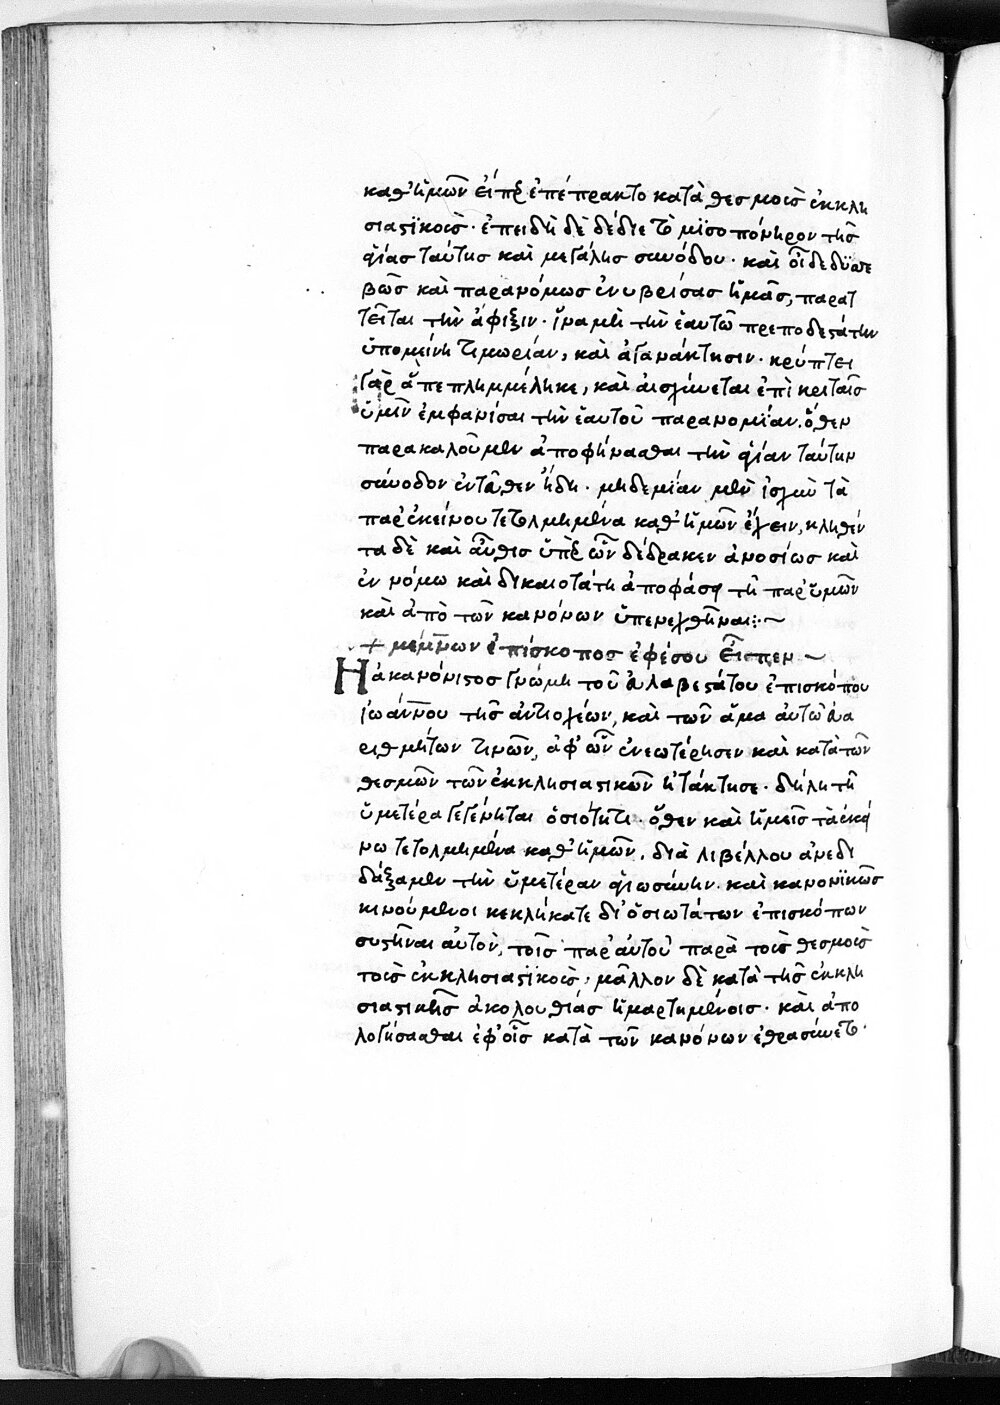 καθ' ἡμῶν εἴπερ ἐπέπρακτο κατὰ θεσμοὺς ἐκκλη
σιαστϊκούς· ἐπειδὴ δὲ δέδιε τὸ μϊσοπόνηρον τῆς
ἁγίας ταύτης καὶ μεγάλης συνόδου· καὶ οἷδε δϋσσε
βῶς καὶ παρανόμως ἐνυβρίσας ἡμᾶς, παραι
τεῖται τὴν ἄφιξιν· ἵνα μὴ τὴν ἑαυτῶ πρεποδεστάτην
ὑπομείνη τιμωρίαν, καὶ ἀγανάκτησιν· κρύπτει
γὰρ ἅπερ πλημμέληκε, καὶ αἰσχύνεται ἐπὶ κριταῖς
ὑμῖν ἐμφανίσαι τὴν ἑαυτοῦ παρανομίαν. ὅθεν
παρακαλοῦμεν ἀποφήνασθαι τὴν ἁγίαν ταύτην
σύνοδον ἐνταῦθεν ἤδη· μηδεμίαν μὲν ἰσχὺν τὰ
παρ' ἐκείνου τετολμημένα καθ' ἡμῶν ἔχειν, κληθέν
τα δὲ καὶ αὖθις ὑπὲρ ὧν δέδρακεν ἀνοσίως καὶ
ἐν νόμω καὶ δικαιοτάτη ἀποφάσει τῆ παρ' ὑμῶν
καὶ ἀπὸ τῶν κανόνων ὑπενεχθῆναι:~
+ μέμνων ἐπίσκοπος ἐφέσου εἶπεν ~
Ἡ ἀκανόνιστος γνώμη τοῦ εὐλαβεστάτου ἐπισκόπου
ἰωάννου τῆς ἀντιοχέων, καὶ τῶν ἅμα αὐτῶ εὐα
ριθμήτων τινῶν, ἀφ' ὧν ἐνεωτέρησεν καὶ κατὰ τῶν
θεσμῶν τῶν ἐκκλησιαστικῶν ἠτάκτησε· δήλη τῆ
ὑμετέρα γεγένηται ὁσιότητι· ὅθεν καὶ ἡμεῖς τὰ ἐκεί
νω τετολμημένα καθ' ἡμῶν, διὰ λιβέλλου ἀνεδι
δάξαμεν τὴν ὑμετέραν ἁγιωσύνην· καὶ κανονϊκῶς
κινούμενοι κεκλήκατε δι' ὁσιωτάτων ἐπισκόπων
συστῆναι αὐτὸν, τοῖς παρ' αὐτοῦ παρὰ τοὺς θεσμοὺς
τοὺς ἐκκλησιαστϊκούς, μᾶλλον δὲ κατὰ τῆς ἐκκλη
σιαστικῆς ἀκολουθίας ἡμαρτημένοις· καὶ ἀπο
λογήσασθαι ἐφ' οἷς κατὰ τῶν κανόνων ἐθρασύνετο·